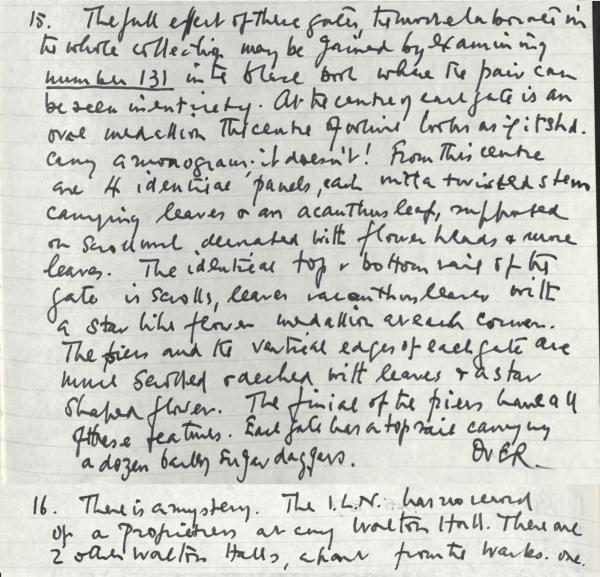 15. The full effect of these gates, the most elaborate in
the whole collection may be gained by examining
number 131 in the black book where the pair can
be seen in entirety. At the centre of each gate is an
oval medallion the centre of which looks as if it shd.
carry a monogram: it doesn't! From this centre
are 4 identical panels, each with a twisted stem
carrying leaves & an acanthus leaf, supported
on scrollwork decorated with flower heads & more
leaves. The identical top & bottom rails of the
gate is scrolls, leaves & acanthus leaves with
a star like flower medallion at each corner.
The piers and the vertical edges of each gate are
much scrolled & arched with leaves & a star
shaped flower. The finial of the piers have all
of these features. Each gate has a top rail carrying
a dozen barley sugar daggers. OVER.
16. There is a mystery. The I.L.N. has no record
of a proprietress at any Walton Hall. There are
2 other Walton Halls, apart from the Works. one